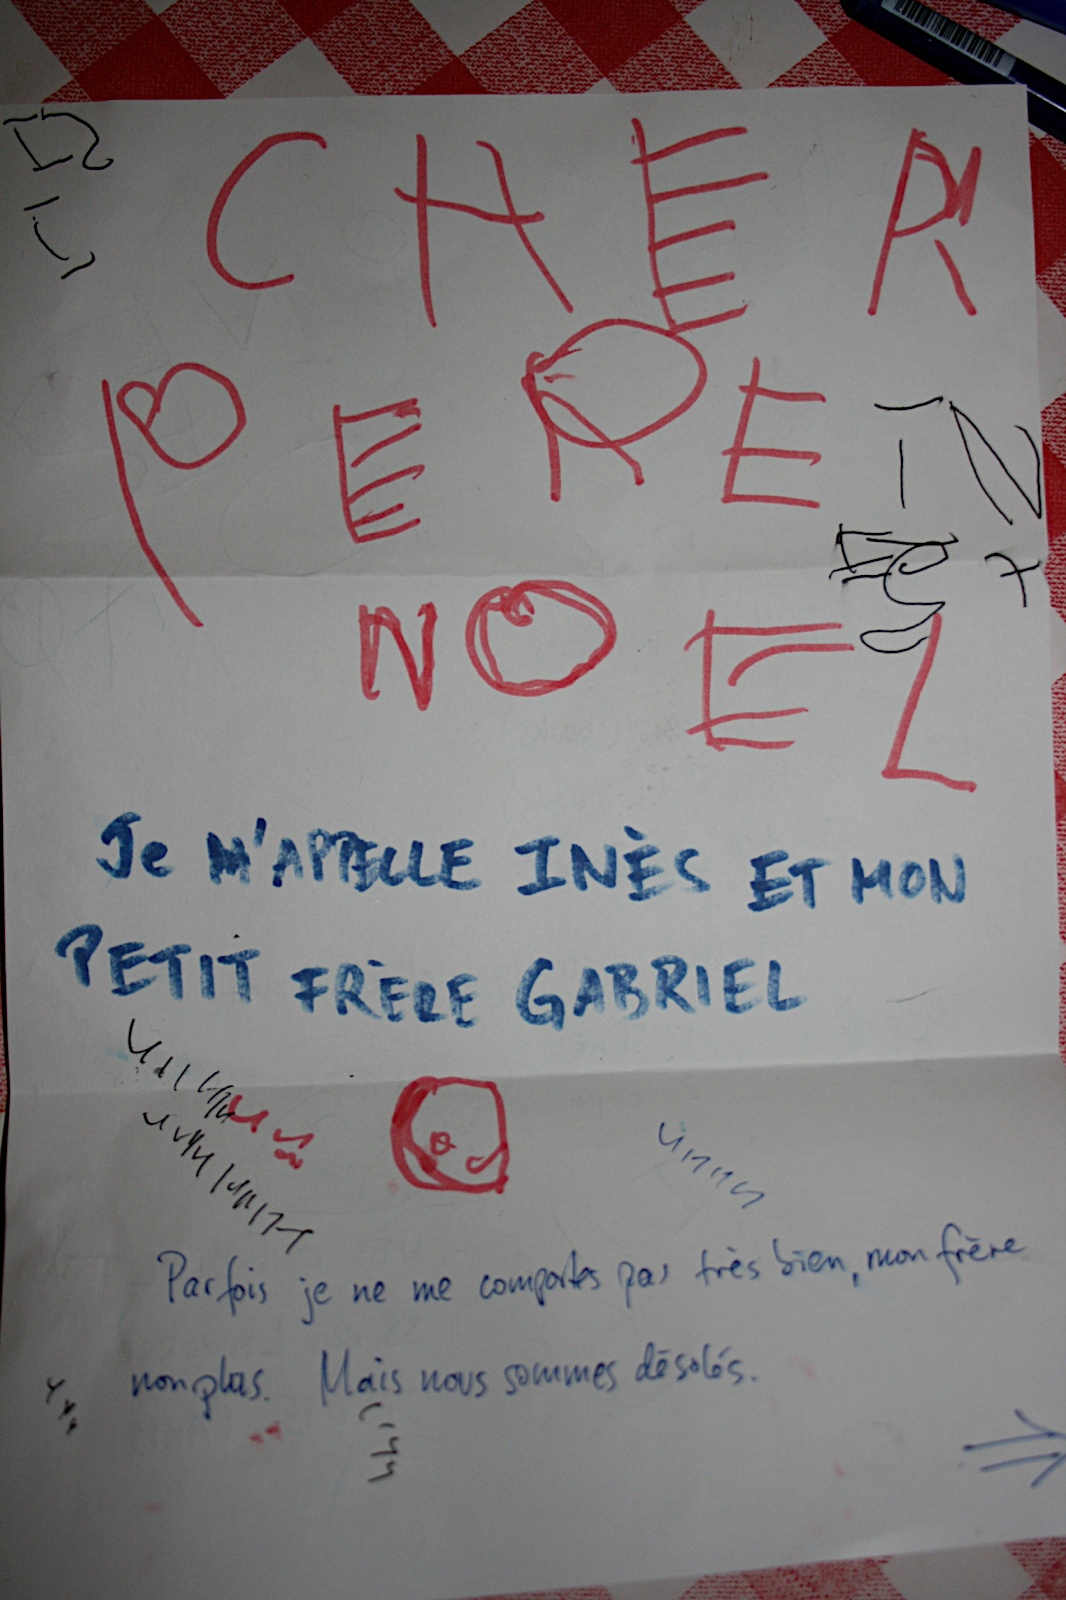 CHER
PERE
NOEL
Je M'APPELLE INÈS ET MON
PETIT FRÈRE GABRIEL
Parfois je ne me comportes pas très bien, mon frère
non plus. Mais nous sommes désolés.